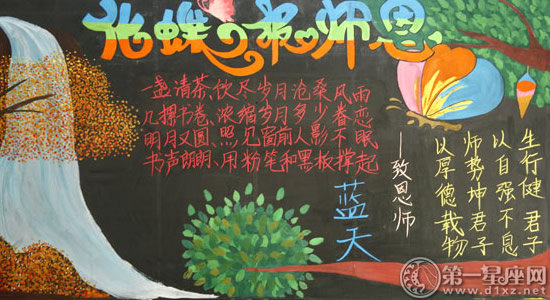 化蝶の报师恩
一盏清茶、饮尽岁月沧桑风雨
几摞书卷、浓缩岁月多少眷恋
明月又圆、照见窗前人影不眠
书声朗朗、用粉笔和黑板撑起
蓝天
—致恩师
生行健 君子
以自强不息
师势坤君子
以厚德载物
第一星座网
www.d1xz.net